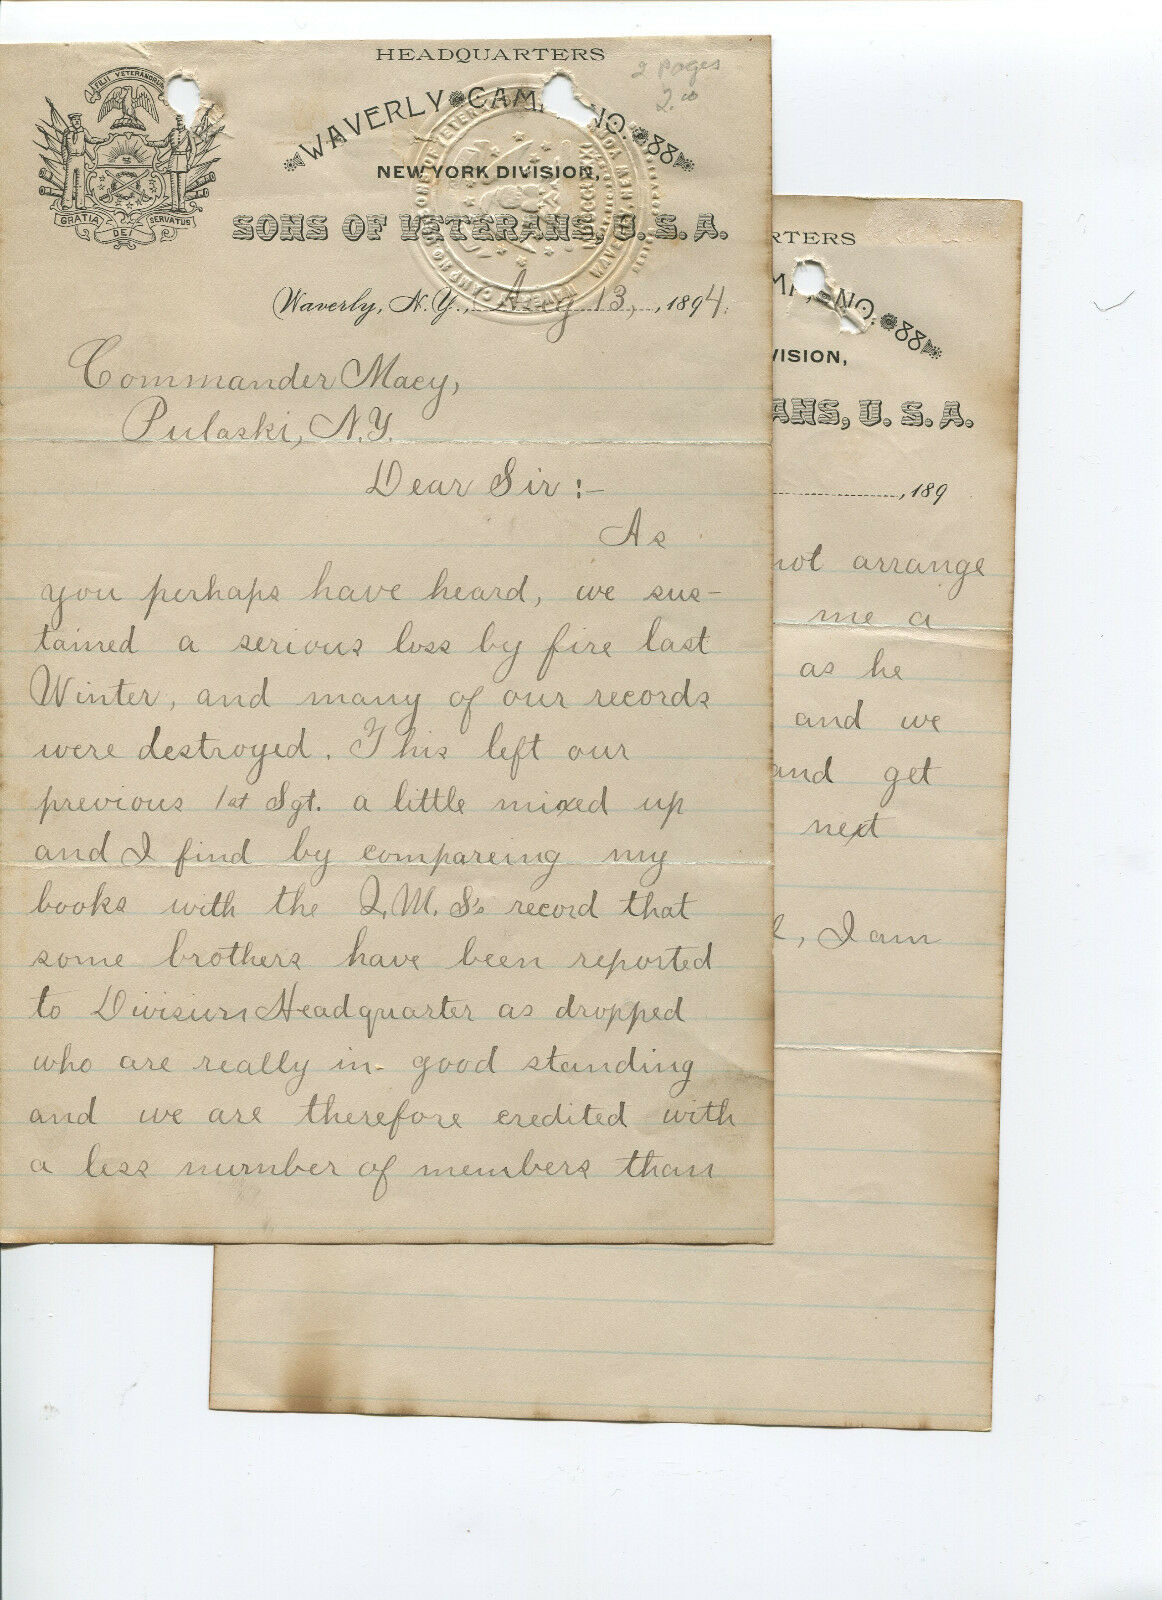 HEADQUARTERS
2 pages
2.00
FILII VETERANORUM
WAVERLY CAMP NO. 88
NEW YORK DIVISION,
SONS OF VETERANS, U.S.A.
GRATIA DEI SERVATUS
Waverly, N.Y., Aug 13, 1894.
Commander Macy,
Pulaski, N.Y.
Dear Sir :-
As
you perhaps have heard, we sus-
tained a serious loss by fire last
Winter, and many of our records
were destroyed. This left our
previous 1st Sgt. a little mixed up
and I find by compareing my
books with the Q.M. S's record that
some brothers have been reported
to Division Headquarter as dropped
who are really in good standing
and we are therefore credited with
a less number of members than
RTERS
NO. 88
VISION,
ANS, U.S.A.
, 189
not arrange
me a
as he
and we
and get
next
, I am